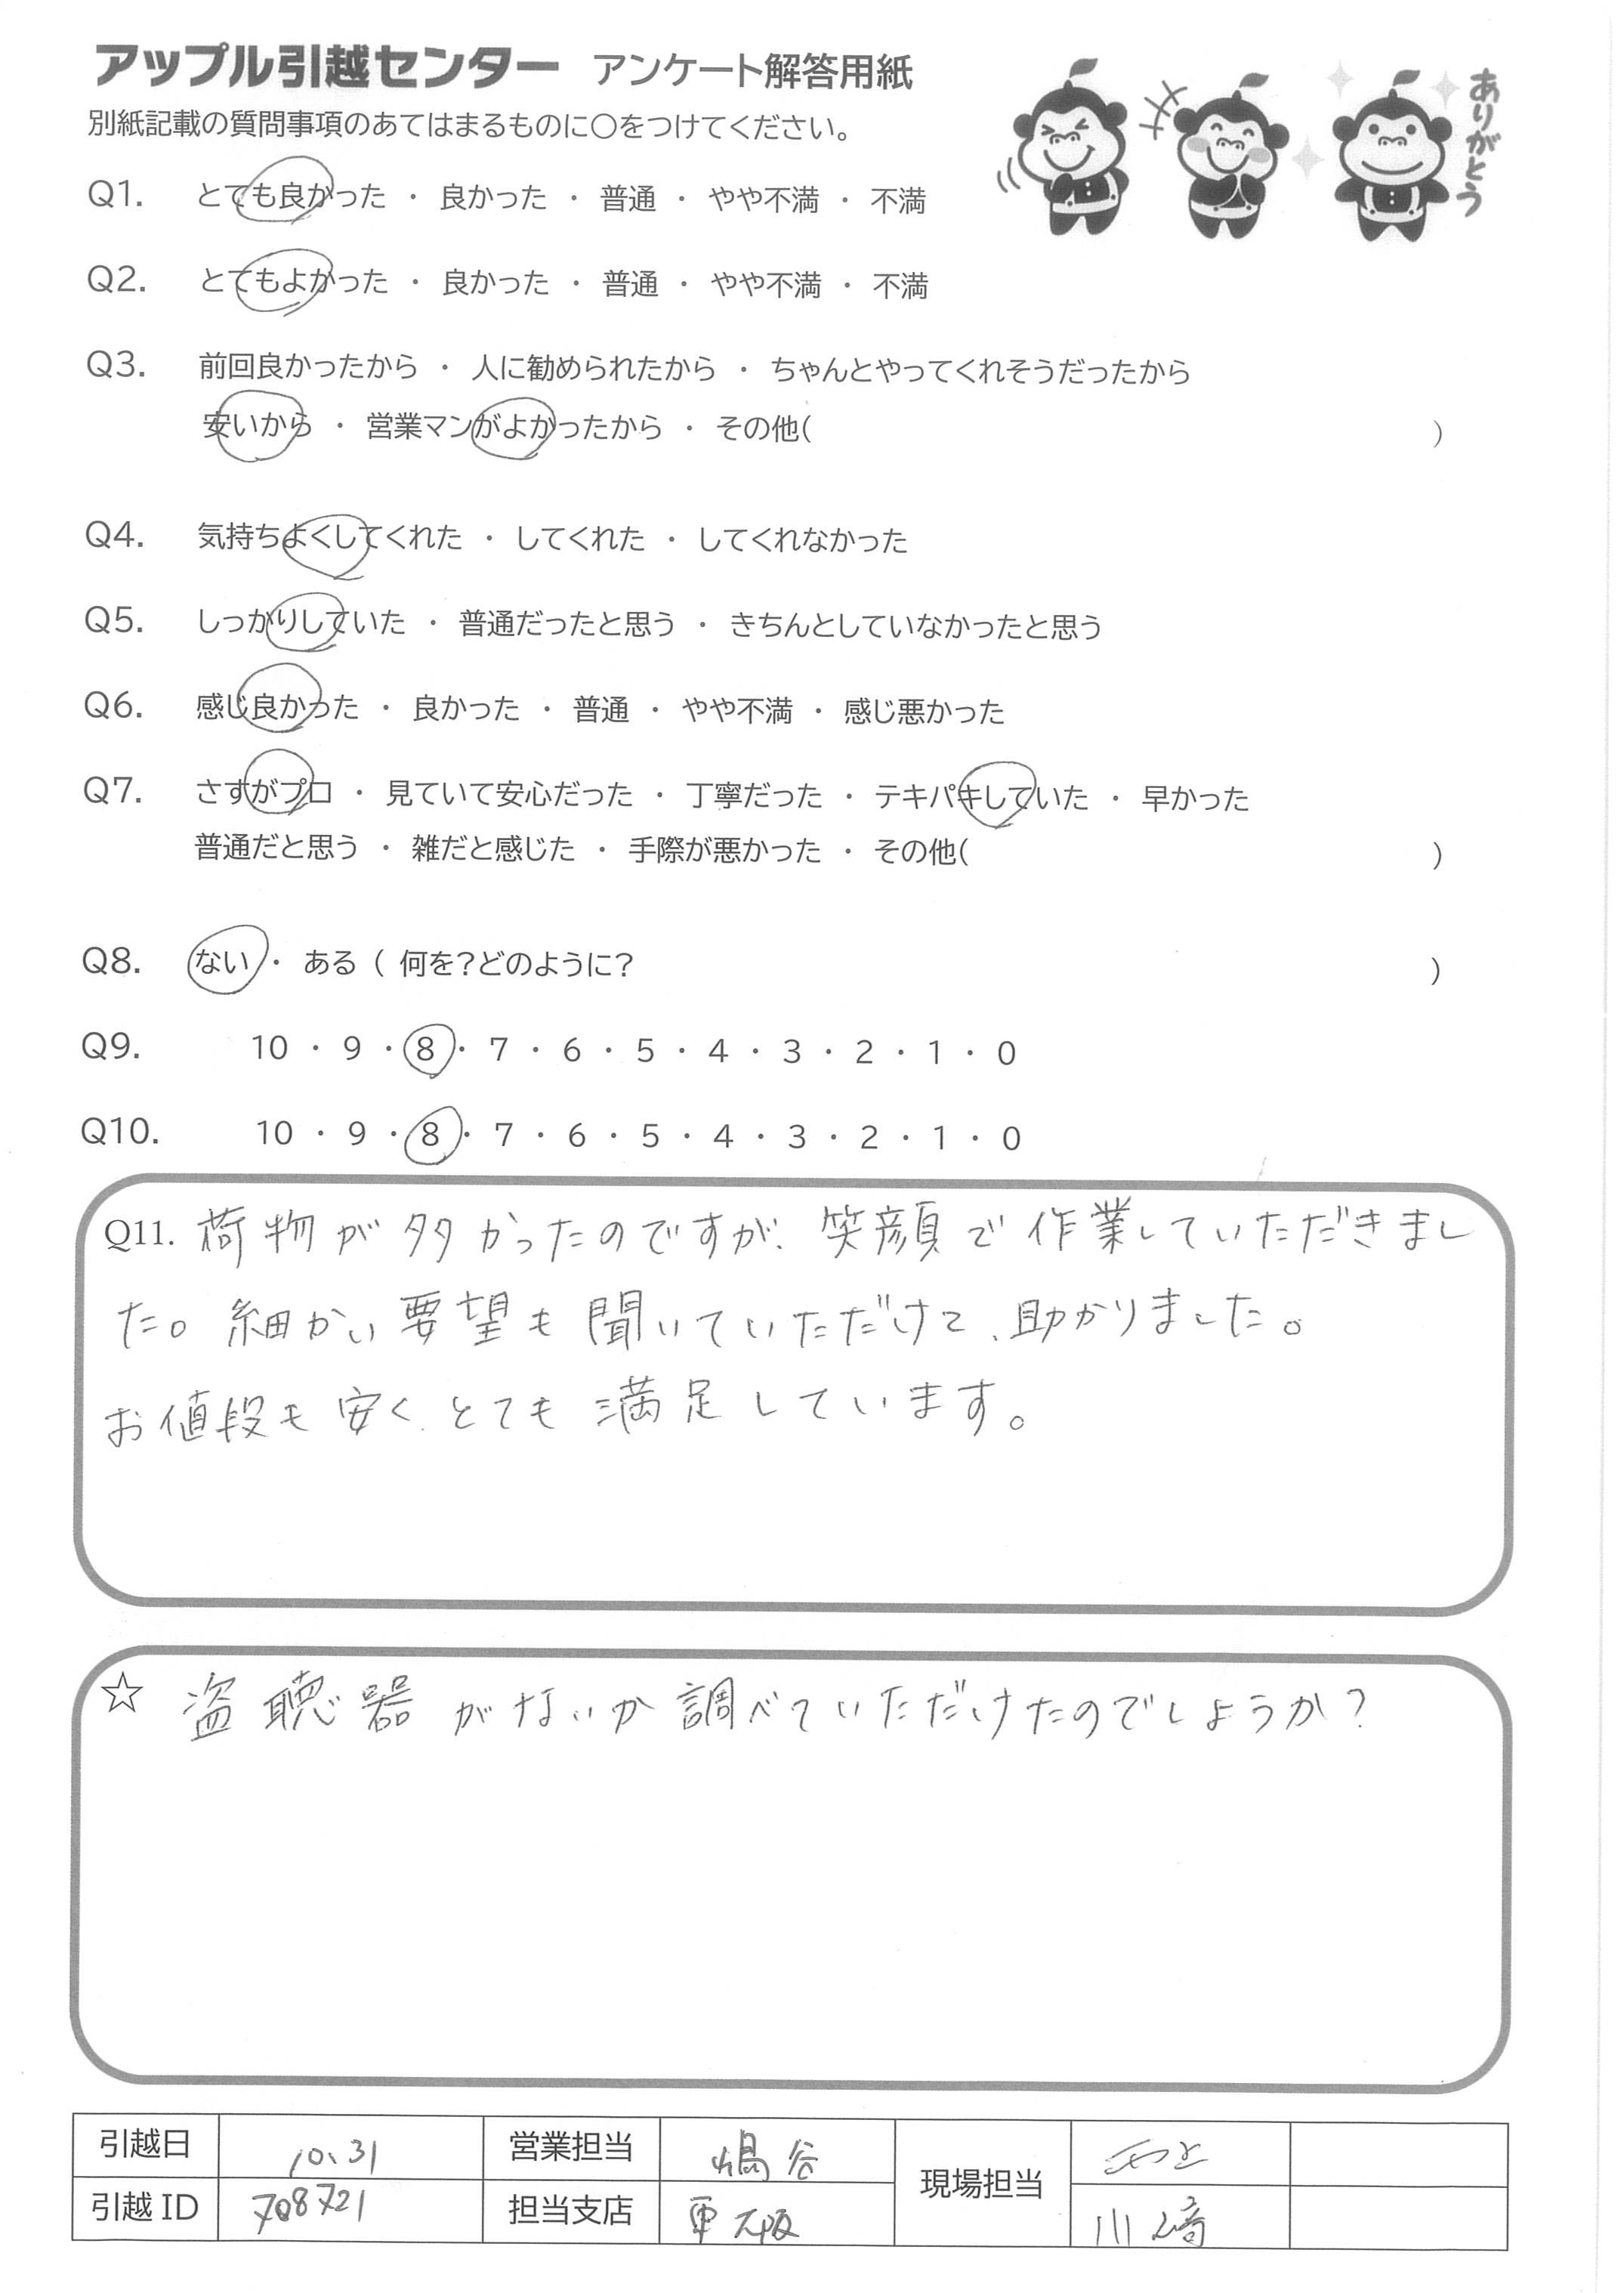 アップル引越センター アンケート解答用紙
別紙記載の質問事項のあてはまるものに○をつけてください。
ありがとう
Q1. とても良かった ・ 良かった ・ 普通 ・ やや不満 ・ 不満
Q2. とてもよかった ・ 良かった ・ 普通 ・ やや不満 ・ 不満
Q3. 前回良かったから ・ 人に勧められたから ・ ちゃんとやってくれそうだったから
安いから ・ 営業マンがよかったから ・ その他( )
Q4. 気持ちよくしてくれた ・ してくれた ・ してくれなかった
Q5. しっかりしていた ・ 普通だったと思う ・ きちんとしていなかったと思う
Q6. 感じ良かった ・ 良かった ・ 普通 ・ やや不満 ・ 感じ悪かった
Q7. さすがプロ ・ 見ていて安心だった ・ 丁寧だった ・ テキパキしていた ・ 早かった
普通だと思う ・ 雑だと感じた ・ 手際が悪かった ・ その他( )
Q8. ない ・ ある ( 何を?どのように? )
Q9. 10 ・ 9 ・ 8 ・ 7 ・ 6 ・ 5 ・ 4 ・ 3 ・ 2 ・ 1 ・ 0
Q10. 10 ・ 9 ・ 8 ・ 7 ・ 6 ・ 5 ・ 4 ・ 3 ・ 2 ・ 1 ・ 0
Q11. 荷物が多かったのですが、笑顔で作業していただきまし
た。細かい要望も聞いていただけて、助かりました。
お値段も安く、とても満足しています。
☆ 盗聴器がないか調べていただけたのでしょうか?
引越日 10.31 営業担当 現場担当
引越ID 708721 担当支店 東大阪 川﨑